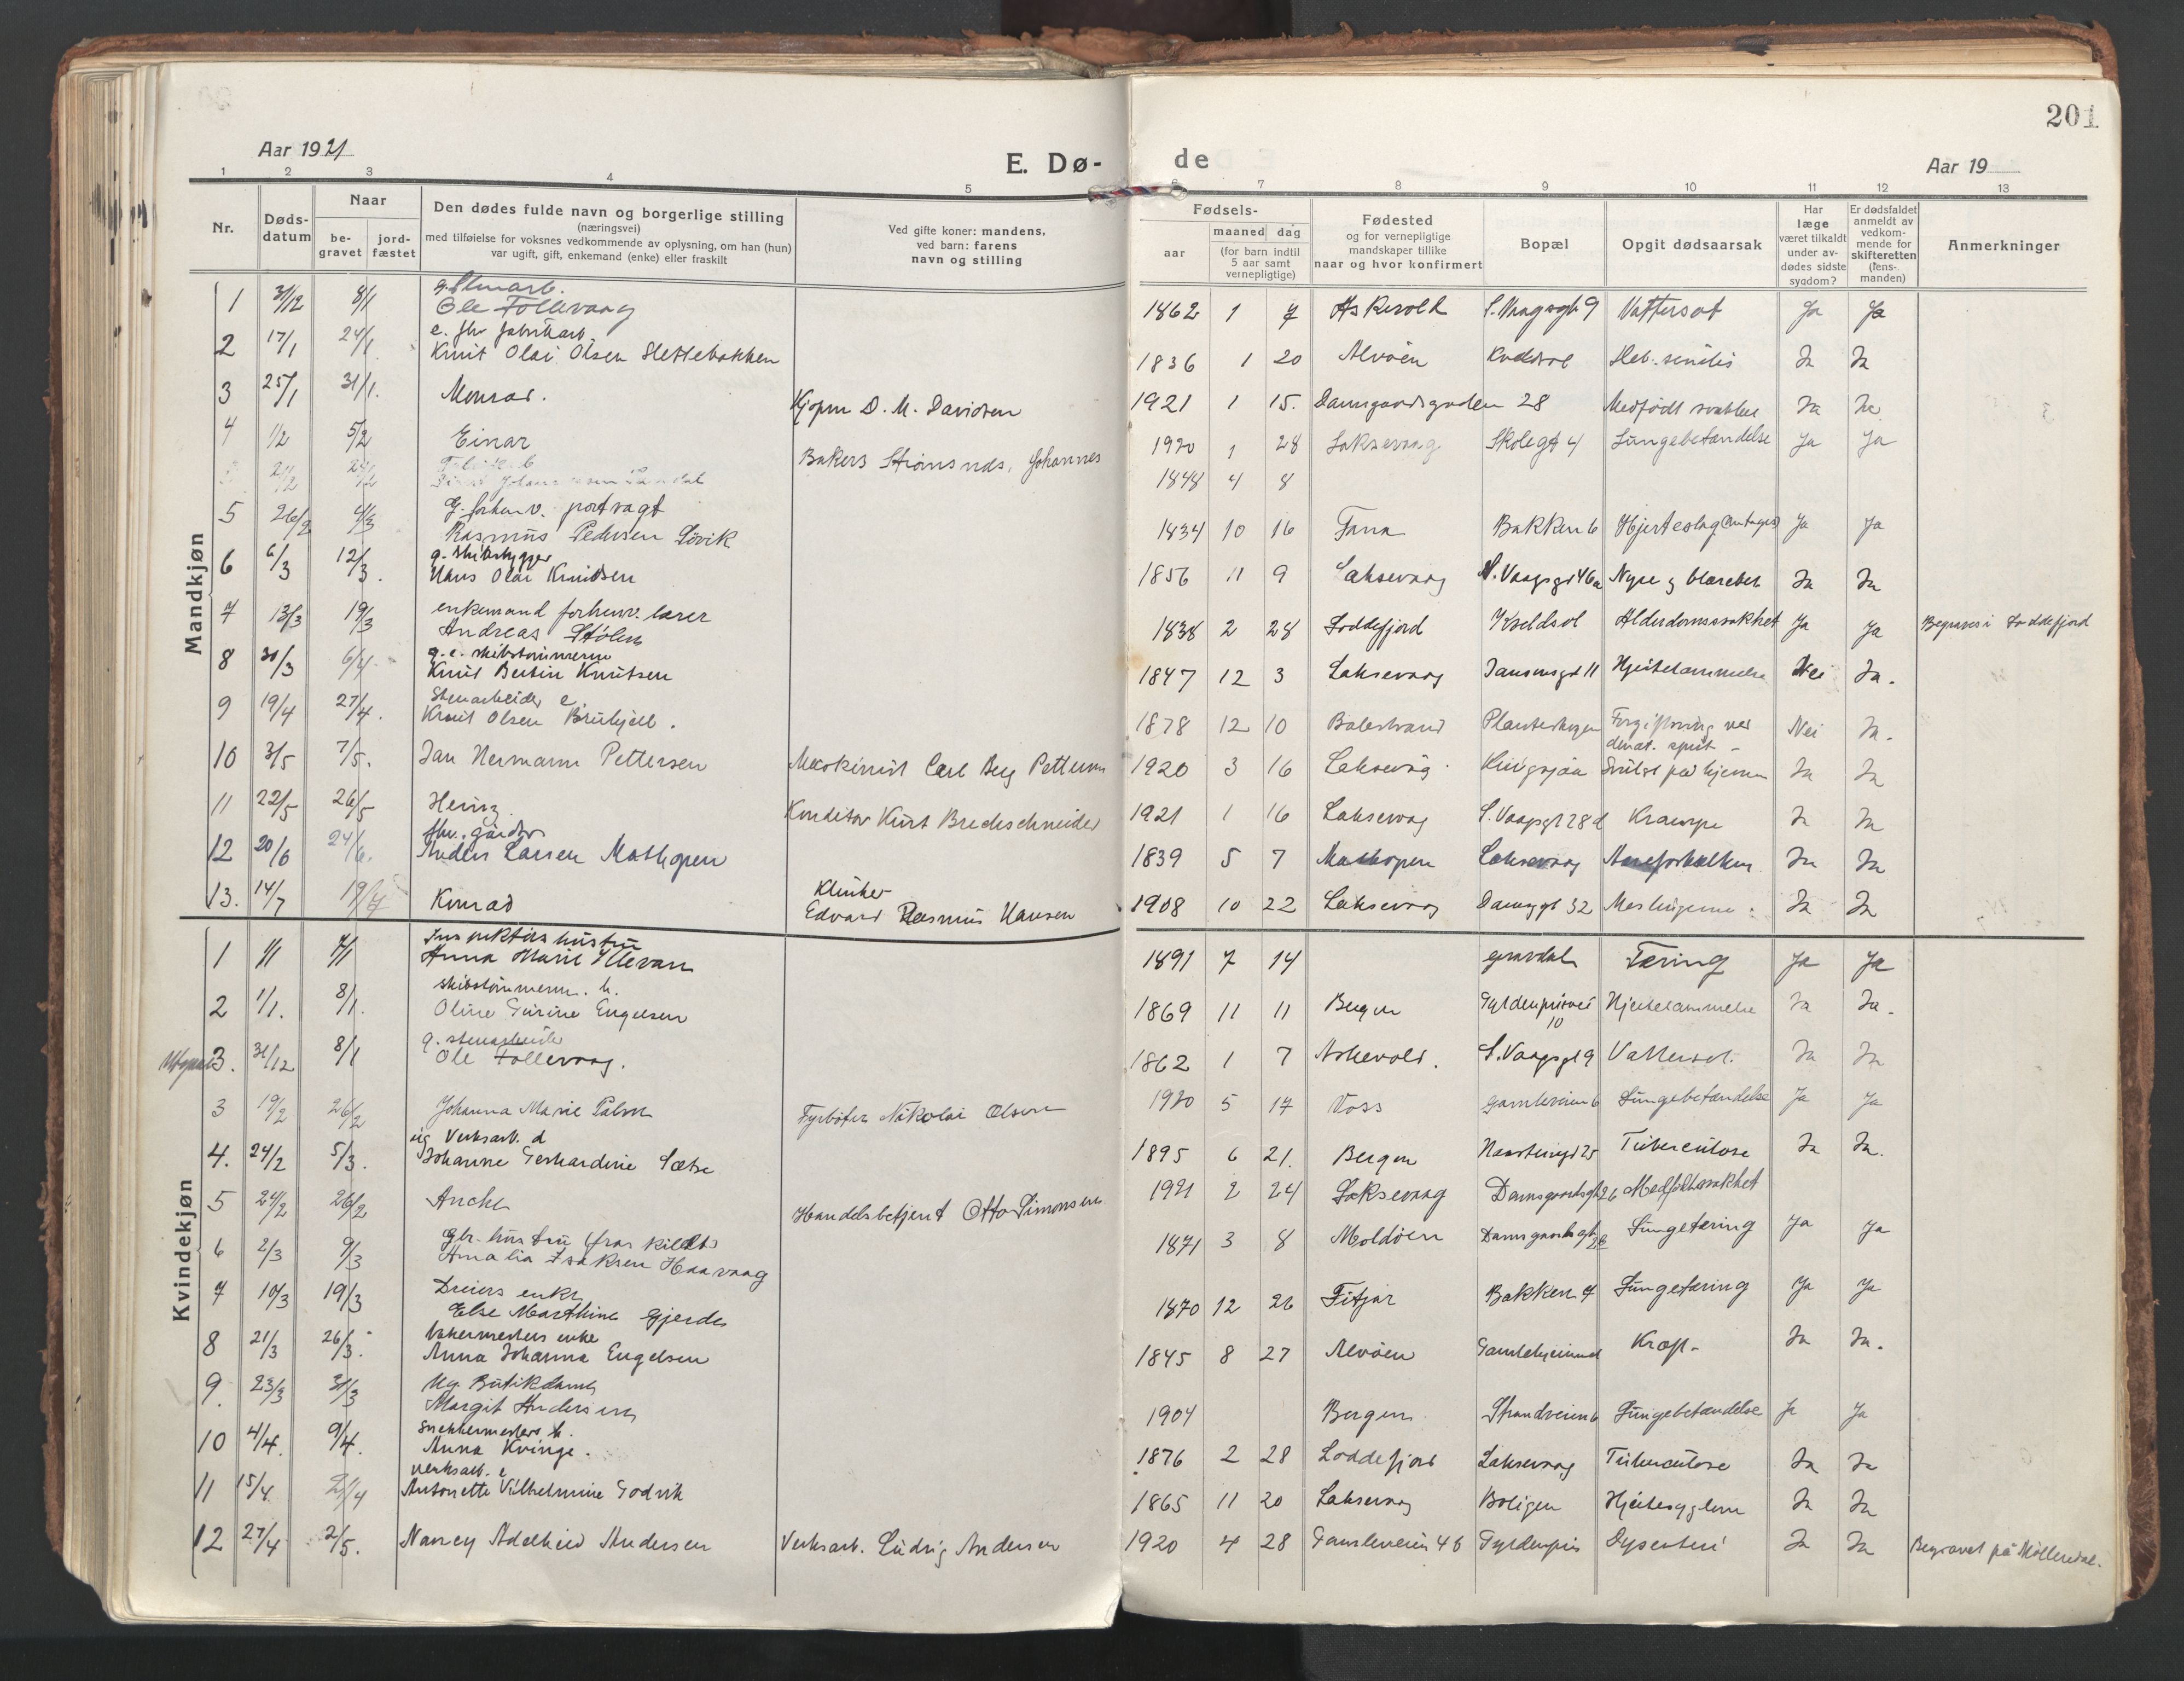 201
Aar 1921
E. Dø-
de
Aar 19
1 2 3 4 5 7 8 9 10 11 12 13
Nr.
Døds-
datum
Naar
be-
gravet
jord-
fæstet
Den dødes fulde navn og borgerlige stilling
(næringsvei)
med tilføielse for voksnes vedkommende av oplysning, om han (hun)
var ugift, gift, enkemand (enke) eller fraskilt
Ved gifte koner: mandens,
ved barn: farens
navn og stilling
Fødsels-
aar
maaned dag
(for barn indtil
5 aar samt
vernepligtige)
Fødested
og for vernepligtige
mandskaper tillike
naar og hvor konfirmert
Bopæl
Opgit dødsaarsak
Har
læge
været tilkaldt
under av-
dødes sidste
sygdom?
Er dødsfaldet
anmeldt av
vedkom-
mende for
skifteretten
(lens-
manden)
Anmerkninger
Mandkjøn
g. Stenarb.
1 31/12 8/1 Ole Follevaag 1862 1 7 Askevold S. Vaagsgt 9 Vattersot Ja Ja
e. fhv. fabrikarb.
2 17/1 24/1 Knut Olai Olsen Slettebakken 1836 1 20 Alvøen Deb. senilis Ja Ja
3 25/1 31/1. Monrad. D. M. Davidsen 1921 1 15. Damsgaardsgaden 28 Medfødt svakhet Ja Ja
4 1/2 5/2 Einar Bakers Johannes 1920 1 28 Laksevaag Skolegt 4 Lungebetændelse Ja Ja
1848 4 8
G. forhenv. portvagt
5 26/2 4/3 Rasmus Pedersen Løvik 1834 10 16 Fana Bakken 6 Hjerteslag (antages) Ja Ja
g. skibsbygger
6 6/3 12/3. Hans Olai Knudsen 1856 11 9 Laksevaag N. Vaagsgt 46a Nyre og blærebet. Ja Ja
enkemand forhenv. lærer
7 13/3 19/3 Andreas Stølen 1838 2 28 Loddefjord Kjeldsol Alderdomssvakhet Ja Ja Begraves i Loddefjord
g. e. skibstømmerm
8 30/3 6/4. Knut Bertin Knutsen 1847 12 3 Laksevaag Jansensgt 11 Hjertelammelse Nei Ja.
Stenarbeider e.
9 19/4 27/4. Knut Olsen 1878 12 10 Balestrand Forgiftning ved Nei Ja.
denat. sprit -
10 3/5 7/5. Jan Hermann Pettersen Maskinist Carl Berg Pettersen 1920 3 16 Laksevåg Ja Ja
11 22/5 26/5 Heinz Konditor Kurt Bredschneider 1921 1 16 Laksevaag S. Vaagsgt 28 d Krampe Ja Ja
fhv. gårdbr
12 20/6 24/6. Anders Larsen Mathopen 1839 5 7 Mathopen Laksevaag Aareforkalkn. Ja Ja
Klinker
13. 14/7 19/7 Konrad Edvard Rasmus Hansen 1908 10 22 Laksevaag Damsgt 32 Meslingerne Ja Ja
Kvindekjøn
Inspektørs hustru
1 1/1 7/1 Anna Marie 1891 7 14 Gravdal Tæring Ja Ja
skibstømmerm. h.
2 1/1. 8/1. Oline Turine Engelsen 1869 11 11 Bergen Gyldenprisvei 10 Hjertelammelse Ja Ja.
g. stenarbeider
Utgaar 3. 31/12 8/1 Ole Follevaag. 1862 1 7 Askevold. S. Vaagsgt 9 Vattersot. Ja Ja
3 19/2 26/2 Johanna Marie Fyrbøter Nikolai Olsen 1920 5 17 Voss Gamleveien 6 Lungebetændelse Ja Ja
ug Verksarb. d
4. 24/2 5/3. Johanne Gerhardine Sætre 1895 6 21. Bergen Tuberculose Ja Ja.
5 24/2 26/2 Handelsbetjent Otto Simonsen 1921 2 24 Laksevaag Damsgaardsgt 26 Medfødt svakhet
Gbr. hustru (fraskildt)
6 2/3 9/3 Amalia Isaksen Haavaag 1871 3 8 Moldøen Damsgaardsgt 28 Lungetæring Ja Ja
Dreiers enke
7 10/3 19/3 Else Marthine Gjerde 1870 12 26 Fitjar Bakken 4 Lungetæring Ja Ja
bakermesters enke
8 21/3 26/3. Anna Johanna Engelsen 1845 8 27 Alvøen Gamlehjemmet Kræft - Ja Ja.
Ug. Butikdame
9. 23/3 31/3 Margit Andersen 1904 Bergen Strandveien 6 Lungebetændelse Ja Ja
Snekkermesters h.
10 4/4. 9/4. Anna Kvinge. 1876 2 28 Loddefjord Laksevaag Tuberculose Ja Ja
Verksarb. e
11 15/4 21/4 Antonette Vilhelmine Godvik 1865 11 20 Laksevaag Boligen Hjertesygdom Ja Ja
12 27/4 2/5. Nancy Adelheid Andersen Verksarb. Ludvig Andersen 1920 4 28 Gamleveien 46 Gyldenpris Dysenteri Ja Ja Begravet på Møllendal.